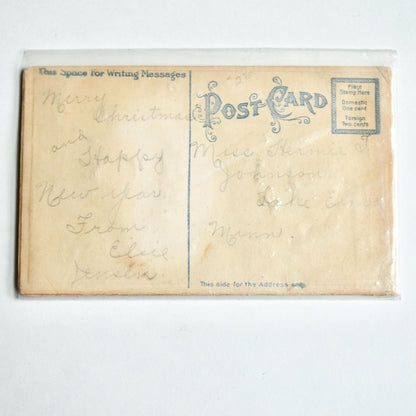 This Space For Writing Messages
Merry
Christmas
and
Happy
New Year
From
Elsie
Jensen
POST CARD
Place
Stamp Here
Domestic
One cent
Foreign
Two cents
Miss
Johnson
Lake
Minn.
This side for the Address only.